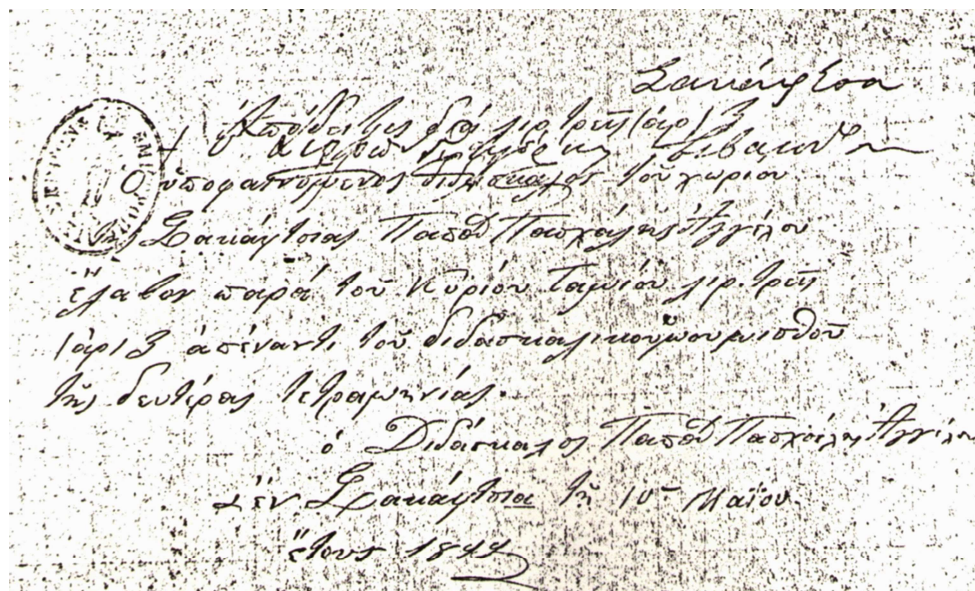 Σακάφτσα
Ἀπόδειξις διὰ λιρ. τρεῖς (ἀρ.) 3
Ὁ ὑποφαινόμενος διδάσκαλος τοῦ χωρίου
τῆς Σακάφτσας Παποῦ Πασχάλης Ἀγγέλου
ἔλαβον παρὰ τοῦ Κυρίου Ταμίου λιρ. τρεῖς
(ἀρ.) 3 ἀπέναντι τοῦ διδασκαλικοῦ μου μισθοῦ
τῆς δευτέρας τετραμηνίας.
ὁ Διδάσκαλος Παποῦ Πασχάλης Ἀγγέλου
ἐν Σακάφτσα τῇ 10 Μαΐου
ἔτους 1844